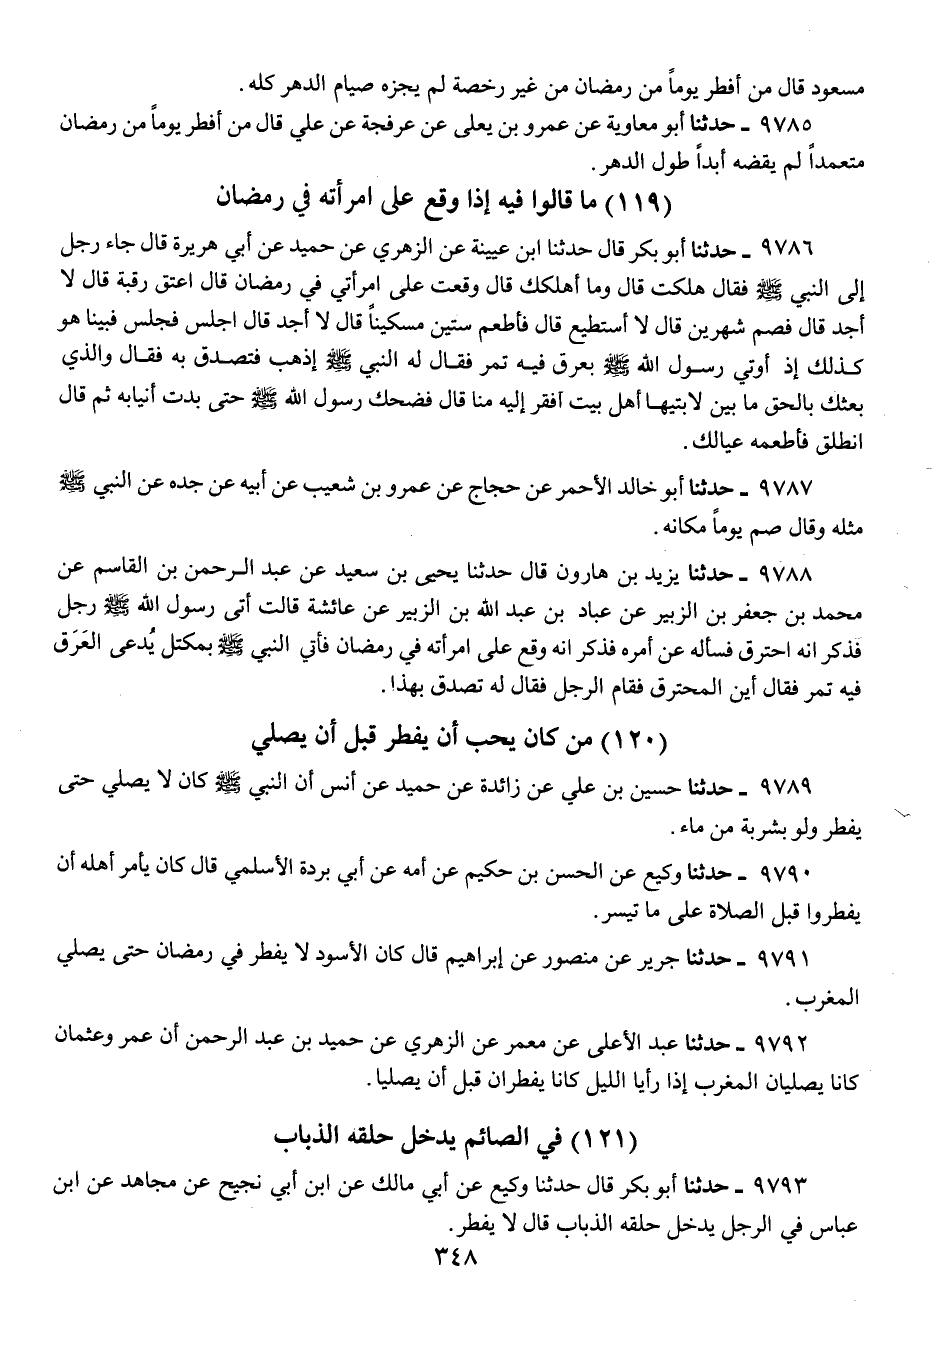 مسعود قال من أفطر يوماً من رمضان من غير رخصة لم يجزه صيام الدهر كله.
٩٧٨٥ ـ حدثنا أبو معاوية عن عمرو بن يعلى عن عرفجة عن علي قال من أفطر يوماً من رمضان
متعمداً لم يقضه أبداً طول الدهر.
(١١٩) ما قالوا فيه إذا وقع على امرأته في رمضان
٩٧٨٦ ـ حدثنا أبو بكر قال حدثنا ابن عيينة عن الزهري عن حميد عن أبي هريرة قال جاء رجل
إلى النبي ﷺ فقال هلكت قال وما أهلكك قال وقعت على امرأتي في رمضان قال اعتق رقبة قال لا
أجد قال فصم شهرين قال لا أستطيع قال فأطعم ستين مسكيناً قال لا أجد قال اجلس فجلس فبينا هو
كذلك إذ أوتي رسول الله ﷺ بعرق فيه تمر فقال له النبي ﷺ إذهب فتصدق به فقال والذي
بعثك بالحق ما بين لابتيها أهل بيت أفقر إليه منا قال فضحك رسول الله ﷺ حتى بدت أنيابه ثم قال
انطلق فأطعمه عيالك.
٩٧٨٧ ـ حدثنا أبو خالد الأحمر عن حجاج عن عمرو بن شعيب عن أبيه عن جده عن النبي ﷺ
مثله وقال صم يوماً مكانه.
٩٧٨٨ ـ حدثنا يزيد بن هارون قال حدثنا يحيى بن سعيد عن عبد الرحمن بن القاسم عن
محمد بن جعفر بن الزبير عن عباد بن عبد الله بن الزبير عن عائشة قالت أتى رسول الله ﷺ رجل
فذكر انه احترق فسأله عن أمره فذكر انه وقع على امرأته في رمضان فأتي النبي ﷺ بمكتل يُدعى العَرَق
فيه تمر فقال أين المحترق فقام الرجل فقال له تصدق بهذا.
(١٢٠) من كان يحب أن يفطر قبل أن يصلي
٩٧٨٩ ـ حدثنا حسين بن علي عن زائدة عن حميد عن أنس أن النبي ﷺ كان لا يصلي حتى
يفطر ولو بشربة من ماء.
٩٧٩٠ ـ حدثنا وكيع عن الحسن بن حكيم عن أمه عن أبي بردة الأسلمي قال كان يأمر أهله أن
يفطروا قبل الصلاة على ما تيسر.
٩٧٩١ ـ حدثنا جرير عن منصور عن إبراهيم قال كان الأسود لا يفطر في رمضان حتى يصلي
المغرب.
٩٧٩٢ ـ حدثنا عبد الأعلى عن معمر عن الزهري عن حميد بن عبد الرحمن أن عمر وعثمان
كانا يصليان المغرب إذا رأيا الليل كانا يفطران قبل أن يصليا.
(١٢١) في الصائم يدخل حلقه الذباب
٩٧٩٣ ـ حدثنا أبو بكر قال حدثنا وكيع عن أبي مالك عن ابن أبي نجيح عن مجاهد عن ابن
عباس في الرجل يدخل حلقه الذباب قال لا يفطر.
٣٤٨